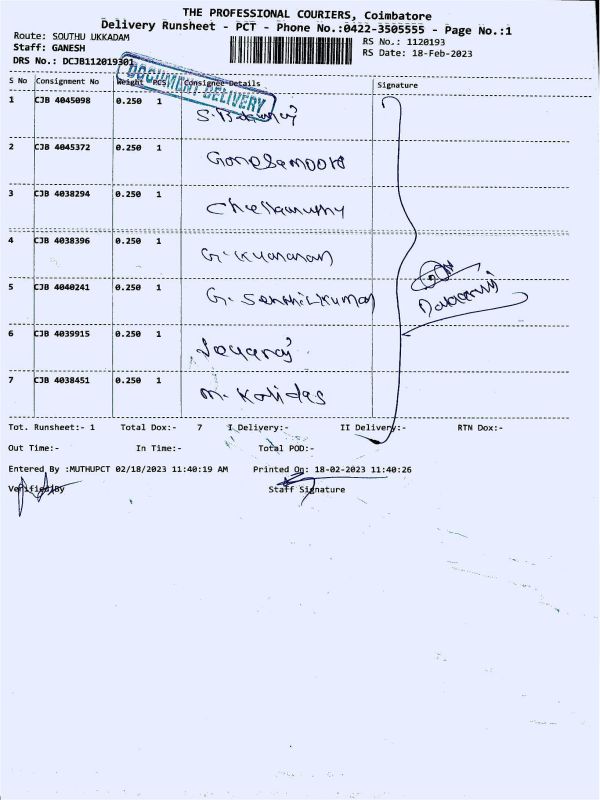 THE PROFESSIONAL COURIERS, Coimbatore
Delivery Runsheet - PCT - Phone No.:0422-3505555 - Page No.:1
Route: SOUTHU UKKADAM
RS No.: 1120193
Staff: GANESH
RS Date: 18-Feb-2023
DRS No.: DCJB112019301
DOCUMENT DELIVERY
S No Consignment No Weight PCS Consignee Details Signature
1 CJB 4045098 0.250 1
2 CJB 4045372 0.250 1
3 CJB 4038294 0.250 1
4 CJB 4038396 0.250 1 G.
5 CJB 4040241 0.250 1 G. Senthilkumar
6 CJB 4039915 0.250 1 Jayaraj
7 CJB 4038451 0.250 1 M. Kalidas
Tot. Runsheet:- 1 Total Dox:- 7 I Delivery:- II Delivery:- RTN Dox:-
Out Time:- In Time:- Total POD:-
Entered By :MUTHUPCT 02/18/2023 11:40:19 AM Printed On: 18-02-2023 11:40:26
Verified By Staff Signature